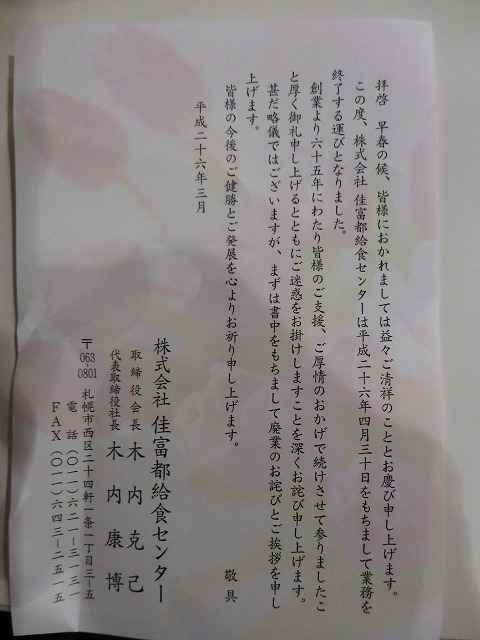 拝啓　早春の候、皆様におかれましては益々ご清祥のこととお慶び申し上げます。
この度、株式会社 佳富都給食センターは平成二十六年四月三十日をもちまして業務を
終了する運びとなりました。
創業より六十五年にわたり皆様のご支援、ご厚情のおかげで続けさせて参りましたこ
と厚く御礼申し上げるとともにご迷惑をお掛けしますことを深くお詫び申し上げます。
甚だ略儀ではございますが、まずは書中をもちまして廃業のお詫びとご挨拶を申し
上げます。
皆様の今後のご健勝とご発展を心よりお祈り申し上げます。
敬具
平成二十六年三月
株式会社 佳富都給食センター
取締役会長 木内克己
代表取締役社長 木内康博
〒063-0801 札幌市西区二十四軒一条一丁目三-五
電話(〇一一)六二一-三一三一
FAX(〇一一)六四三-二五一五